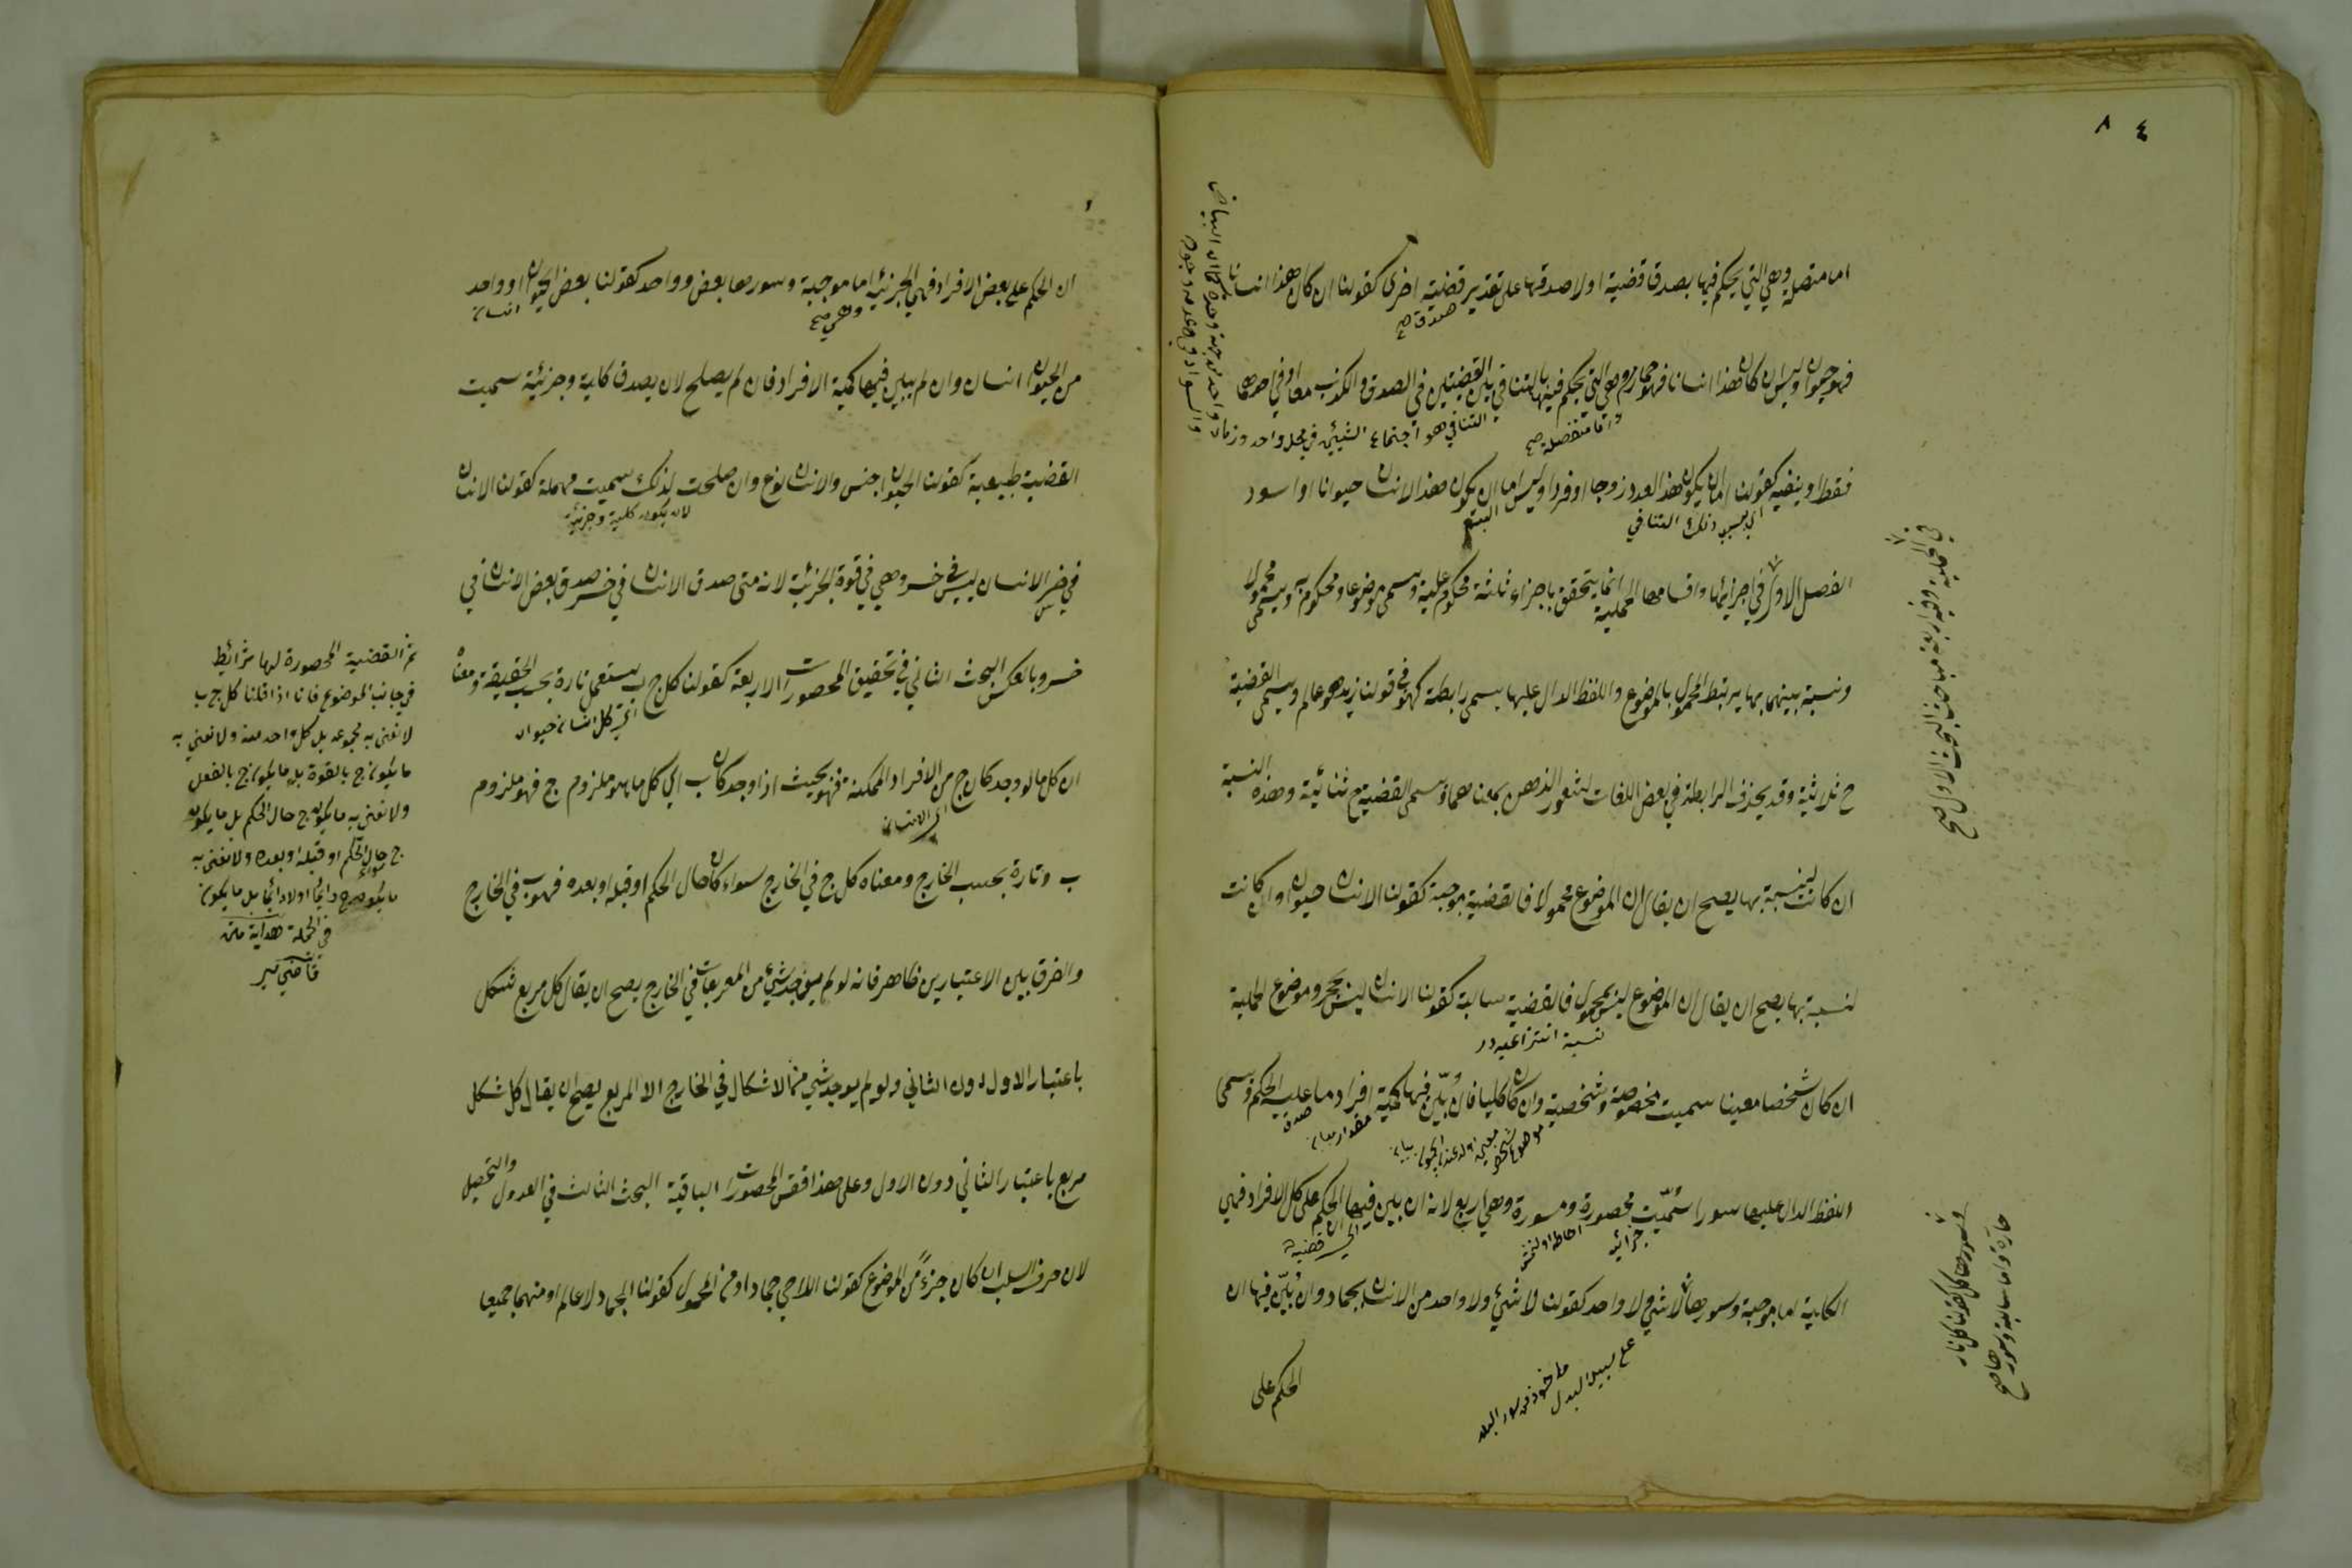 ٨ ٤
اما متصلة وهي التي يحكم فيها بصدق قضية اولا صدقها على تقدير قضية اخرى كقولنا ان كان هذا انسانا
صدق صح
فهو حيوان وليس ان كان هذا انسانا فهو جماد وهي التي يحكم فيها بالتنافي بين القضيتين في الصدق والكذب معا او في احدهما
واما منفصلة صح
التنافي هو اجتماع الشيئين في محل واحد وزمان واحد من جهة وحدة كما ان البياض
والسواد في
فقط او بنفيه كقولنا اما ان يكون هذا العدد زوجا او فردا وليس اما ان يكون هذا الانسان حيوانا او اسود
اي بسبب ذلك التنافي
البتة
الفصل الاول في اجزائها واقسامها الحملية انما يتحقق باجزاء ثلثة محكوم عليه ويسمى موضوعا ومحكوم به ويسمى محمولا
البحث الاول صح
ونسبة بينهما بها يرتبط المحمول بالموضوع واللفظ الدال عليها يسمى رابطة كهو في قولنا زيد هو عالم ويسمى القضية
ح ثلاثية وقد يحذف الرابطة في بعض اللغات لشعور الذهن بمعناها ويسمى القضية ح ثنائية وهذه النسبة
ان كانت نسبة بها يصح ان يقال ان الموضوع محمول فالقضية موجبة كقولنا الانسان حيوان وان كانت
لنسبة بها يصح ان يقال ان الموضوع ليس بمحمول فالقضية سالبة كقولنا الانسان ليس بحجر وموضوع الحملية
نسبة انتزاعية
ان كان شخصا معينا سميت مخصوصة وشخصية وان كان كليا فان بين فيها كمية افراد ما عليه الحكم ويسمى
مقدار بيان
صدق
اللفظ الدال عليها سورا سميت محصورة ومسورة وهي اربع لانه ان بين فيها ان الحكم على كل الافراد فهي
اي قضية
الكلية اما موجبة وسورها لا شيء ولا واحد كقولنا لا شيء ولا واحد من الانسان بجماد وان بين فيها ان
وسورها كل كقولنا كل نار
حارة واما سالبة وسورها صح
على سبيل البدل
ماخوذ من سور البلد
الحكم على
ان الحكم على بعض الافراد فهي الجزئية اما موجبة وسورها بعض وواحد كقولنا بعض الحيوان او واحد
وهي صح
انسان
من الحيوان انسان وان لم يبين فيها كمية الافراد فان لم يصلح لان يصدق كلية وجزئية سميت
القضية طبيعية كقولنا الحيوان جنس والانسان نوع وان صلحت لذلك سميت مهملة كقولنا الانسان
لان يكون كلية وجزئية
في خسر الانسان ليس في خسر وهي في قوة الجزئية لانه متى صدق الانسان في خسر صدق بعض الانسان في
خسر وبالعكس البحث الثاني في تحقيق المحصورات الاربعة كقولنا كل ج ب يستعمل تارة بحسب الحقيقة ومعناه
كل انسان حيوان
ان كل ما لو وجد كان ج من الافراد الممكنة فهو بحيث اذا وجد كان ب اي كل ما هو ملزوم ج فهو ملزوم
اي الانسان
ب وتارة بحسب الخارج ومعناه كل ج في الخارج سواء كان حال الحكم او قبله او بعده فهو ب في الخارج
والفرق بين الاعتبارين ظاهر فانه لو لم يوجد شيء من المربعات في الخارج يصح ان يقال كل مربع شكل
باعتبار الاول دون الثاني ولو لم يوجد شيء من الاشكال في الخارج الا المربع يصح ان يقال كل شكل
مربع باعتبار الثاني دون الاول وعلى هذا فقس المحصورات الباقية البحث الثالث في العدول والتحصيل
لان حرف السلب ان كان جزءً من الموضوع كقولنا اللاحي جماد او من المحمول كقولنا الجماد لا عالم او منهما جميعا
ثم القضية المحصورة لها شرائط
في جانب الموضوع فانا اذا قلنا كل ج ب
لا نعني به مجموعه بل كل واحد منه ولا نعني به
ما يكون ج بالقوة بل ما يكون ج بالفعل
ولا نعني به ما يكون ج حال الحكم بل ما يكون
ج حال الحكم او قبله او بعده ولا نعني به
ما يكون ج دائما او لا دائما بل ما يكون
في الجملة هداية متن
قاضي مير